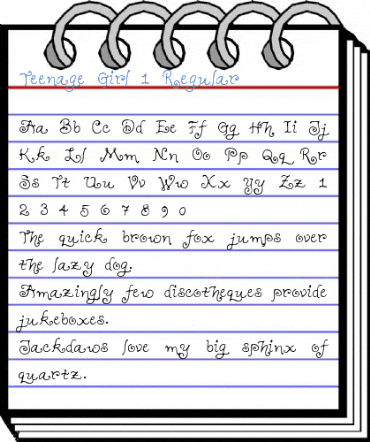 Teenage Girl 1 Regular
Aa Bb Cc Dd Ee Ff Gg Hh Ii Jj
Kk Ll Mm Nn Oo Pp Qq Rr
Ss Tt Uu Vv Ww Xx Yy Zz 1
2 3 4 5 6 7 8 9 0
The quick brown fox jumps over
the lazy dog.
Amazingly few discotheques provide
jukeboxes.
Jackdaws love my big sphinx of
quartz.